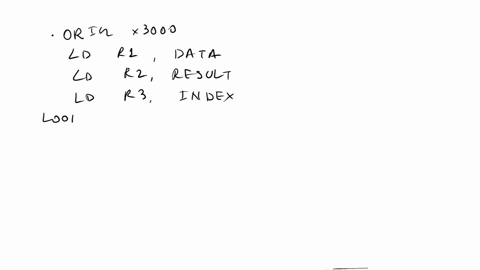 . ORIG x3000
LD R1, DATA
LD R2, RESULT
LD R3, INDEX
LOOP